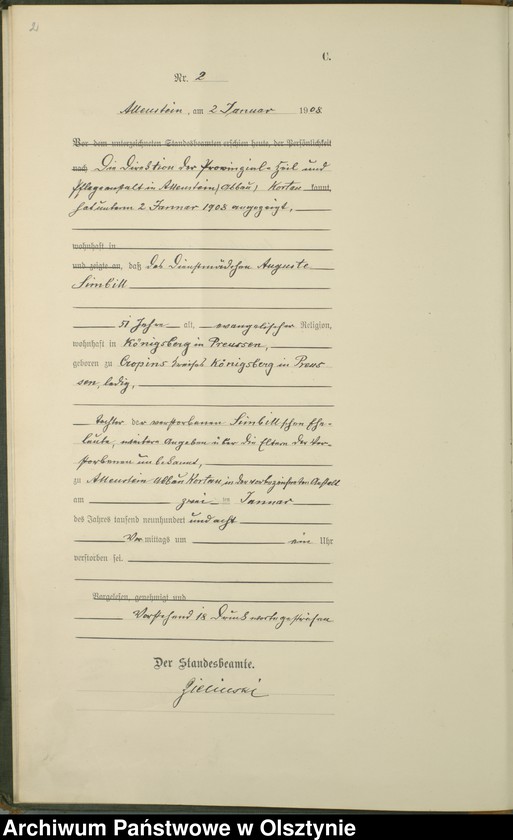 2
C.
Nr. 2
Allenstein, am 2 Januar 1908
Vor dem unterzeichneten Standesbeamten erschien heute, der Persönlichkeit
nach Die Direktion der Provinzial-Heil und
Pflegeanstalt in Allenstein, Abbau, Kortau kannt,
hat unterm 2 Januar 1908 angezeigt,
wohnhaft in
und zeigte an, daß das Dienstmädchen Auguste
Simbill
51 Jahre alt, evangelischer Religion,
wohnhaft in Königsberg in Preussen,
geboren zu Kreises Königsberg in Preus
sen, ledig,
Tochter der verstorbenen Simbill'schen Ehe-
leute, weitere Angaben über die Eltern der Ver-
storbenen unbekannt,
zu Allenstein Abbau Kortau, in der vorbezeichneten Anstalt
am zwei ten Januar
des Jahres tausend neunhundert und acht
Vor mittags um ein Uhr
verstorben sei.
Vorgelesen, genehmigt und
Vorstehend 18 Druckworte gestrichen
Der Standesbeamte.
Zielinski
Archiwum Państwowe w Olsztynie